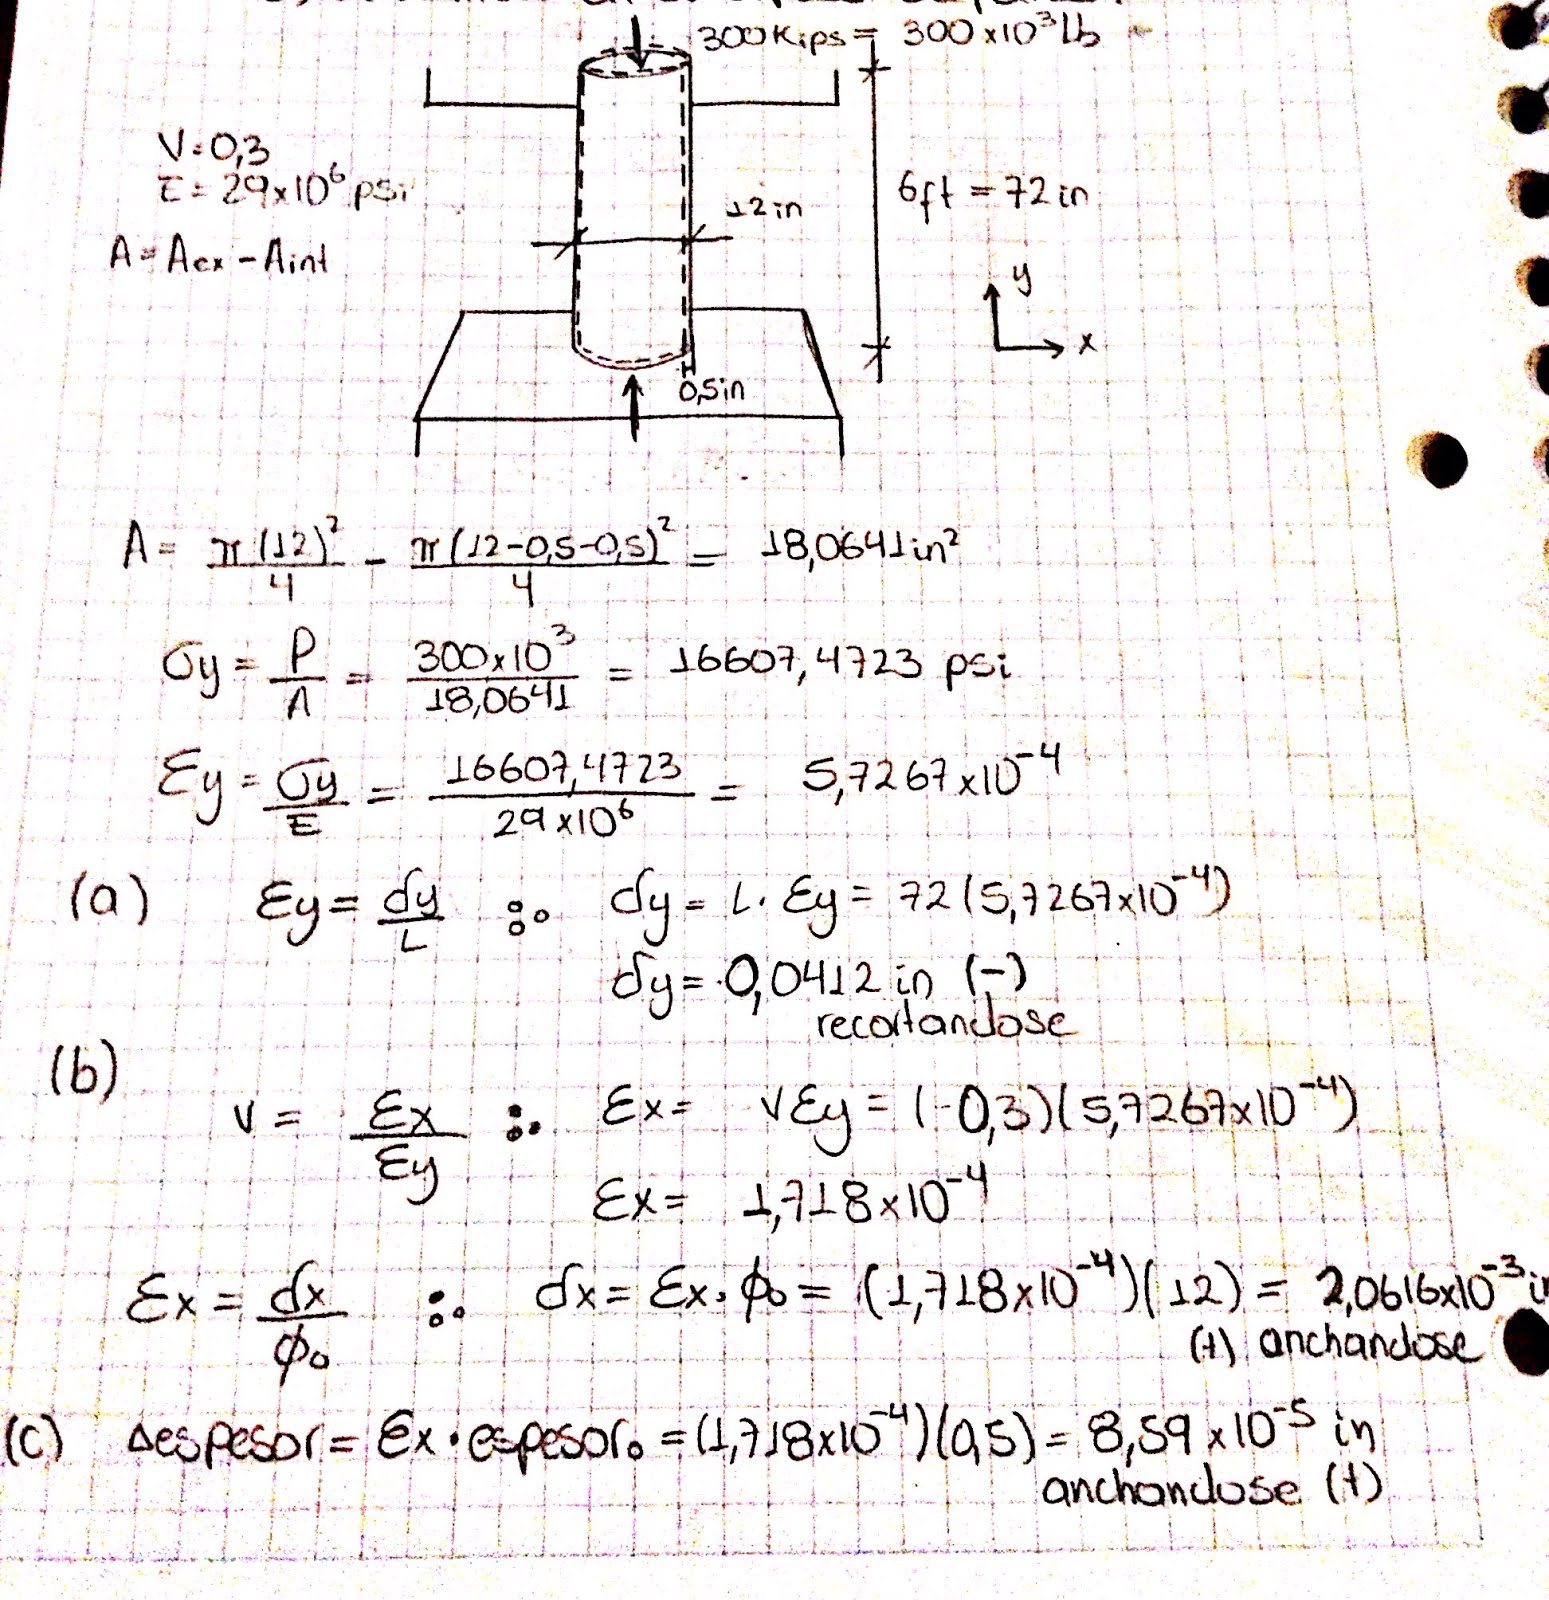 300Kips = 300x10³lb
V=0,3
E=29x10⁶psi
A=Aex-Aint
12in
6ft = 72in
y
x
0,5in
A= π(12)²/4 - π(12-0,5-0,5)²/4 = 18,0641in²
σy = P/A = 300x10³/18,0641 = 16607,4723 psi
Ey = σy/E = 16607,4723/29x10⁶ = 5,7267x10⁻⁴
(a) Ey = δy/L ∴ δy = L. Ey = 72(5,7267x10⁻⁴)
δy = 0,0412in (-)
recortandose
(b) v = Ex/Ey ∴ Ex = vEy = (-0,3)(5,7267x10⁻⁴)
Ex = 1,718x10⁻⁴
Ex = δx/ϕo ∴ δx = Ex. ϕo = (1,718x10⁻⁴)(12) = 2,0616x10⁻³in
(+) anchandose
(c) Δespesor = Ex.espesoro = (1,718x10⁻⁴)(0,5) = 8,59x10⁻⁵ in
anchandose (+)